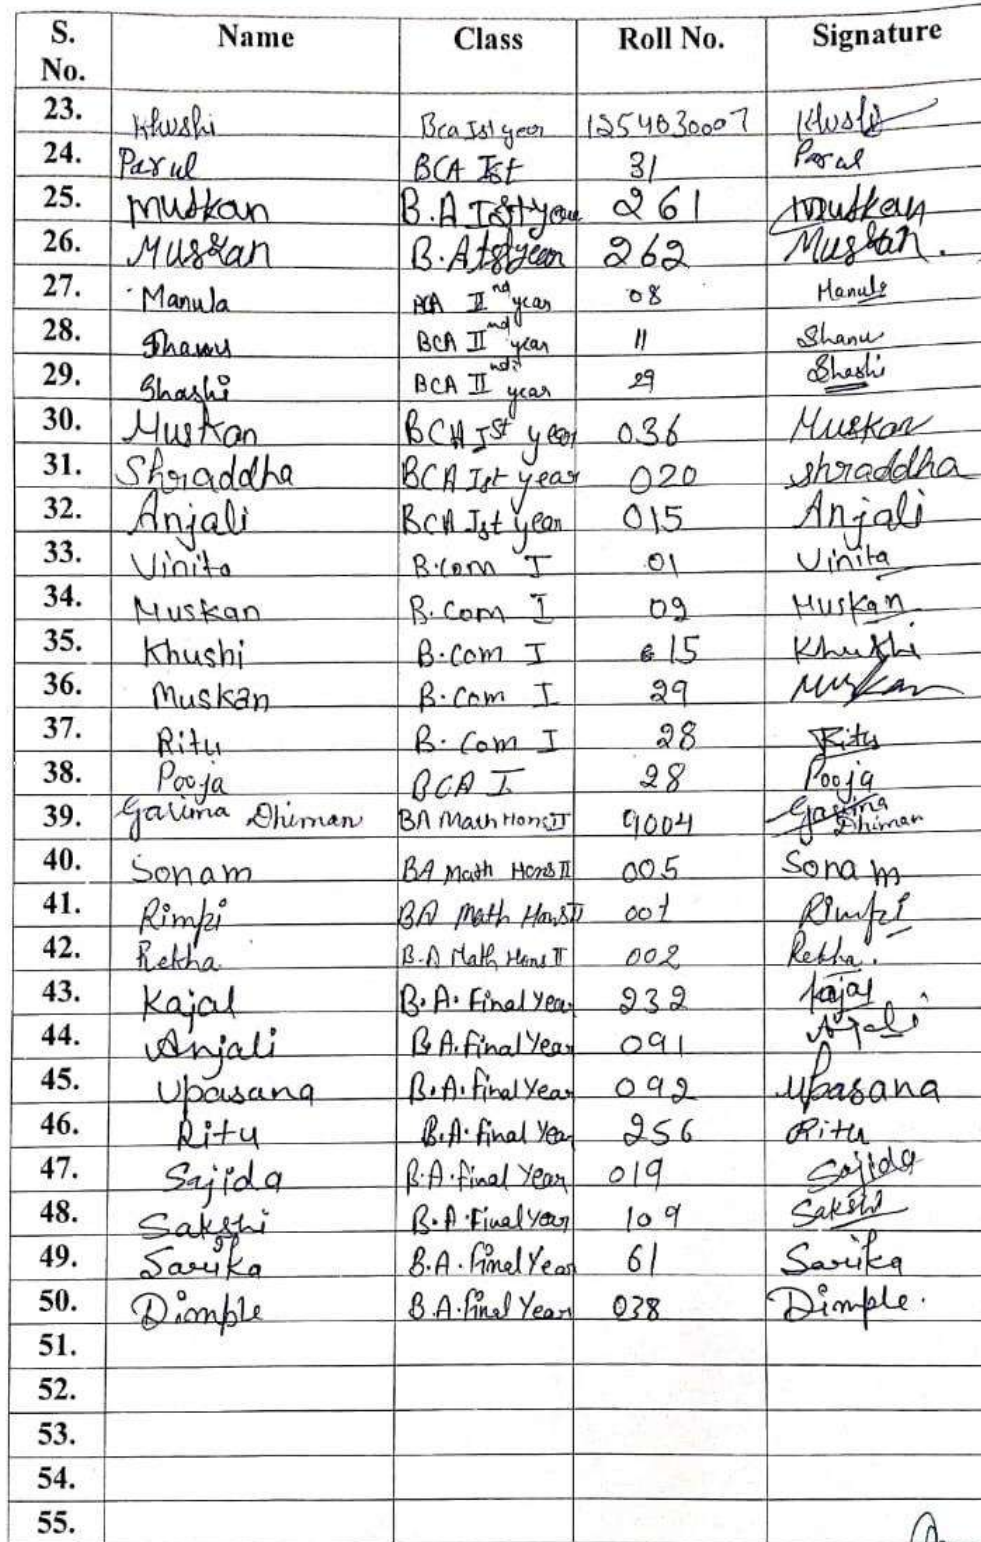 S. No. Name Class Roll No. Signature
23. Khushi Bca Ist year 1254030007 Khushi
24. Parul BCA Ist 31 Parul
25. Muskan B.A Ist year 261 Muskan
26. Muskan B.A Ist year 262 Muskan.
27. Manula BCA II nd year 08 Manula
28. BCA II nd year 11 Shanu
29. Shashi BCA II nd year 29 Shashi
30. Muskan BCA Ist year 036 Muskan
31. Shraddha BCA Ist year 020 Shraddha
32. Anjali BCA Ist year 015 Anjali
33. Vinita B.com I 01 Vinita
34. Muskan B.Com I 09 Muskan
35. Khushi B.Com I 15 Khushi
36. Muskan B.Com I 29 Muskan
37. Ritu B.Com I 28 Ritu
38. Pooja BCA I 28 Pooja
39. Garima Dhiman BA Math Hons II 9004 Garima Dhiman
40. Sonam BA Math Hons II 005 Sonam
41. Rimpi BA Math Hons II 001 Rimpi
42. Rekha B.A Math Hons II 002 Rekha.
43. Kajal B.A. Final Year 232 Kajal
44. Anjali B.A. Final Year 091 Anjali
45. Upasana B.A. Final Year 092 Upasana
46. Ritu B.A. Final Year 256 Ritu
47. Sajida B.A. Final Year 019 Sajida
48. Sakshi B.A. Final Year 109 Sakshi
49. Sarika B.A. Final Year 61 Sarika
50. Dimple B.A. Final Year 038 Dimple.
51.
52.
53.
54.
55.